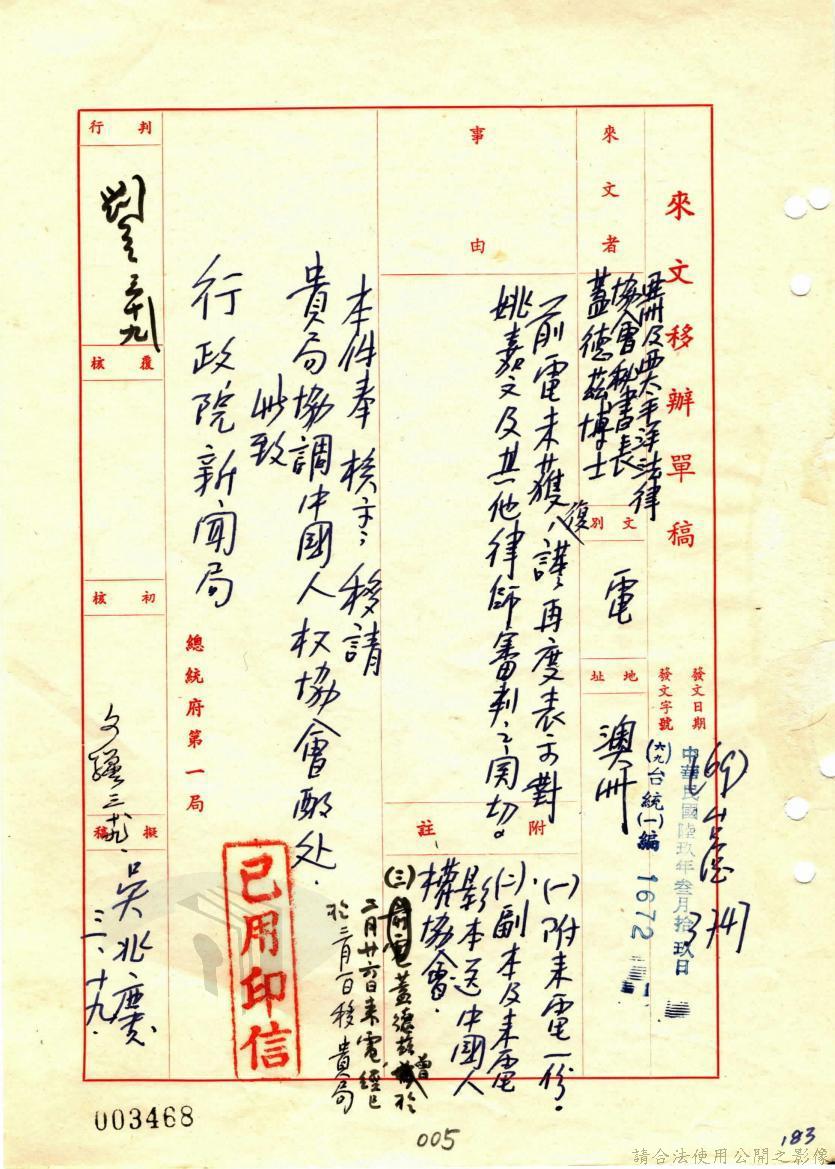 來文移辦單稿
發文日期
發文字號
中華民國陸玖年叁月拾玖日
(六九)台統(一)編 1672
(69)
3747
來文者
亞洲及西太平洋法律
協會秘書長
蓋德茲博士
文別
電
地址
澳州
事由
前電未獲復,謹再度表示對
姚嘉文及其他律師審判之関切。
附註
(一)附来電一份。
(二)副本及来電
影本送中國人
權協會。
(三)蓋德茲曾於
二月廿六日来電,經已
於三月一日移貴局
本件奉 核示:移請
貴局協調中國人权協會酌处.
此致
行政院新聞局
總統府第一局
已用印信
判行
覆核
初核
三.十九
擬稿
吳兆慶
三.十九.
003468
005
183
請合法使用公開之影像